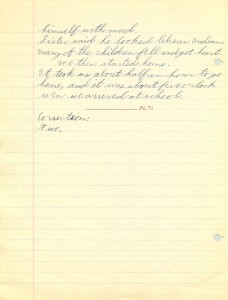 himself with mud.
Sister said he looked like an Indian
many of the children fell and got hurt.
We then started home.
It took us about half an hour to go
home, and it was about five o'clock
when we arrived at school.
Correction: